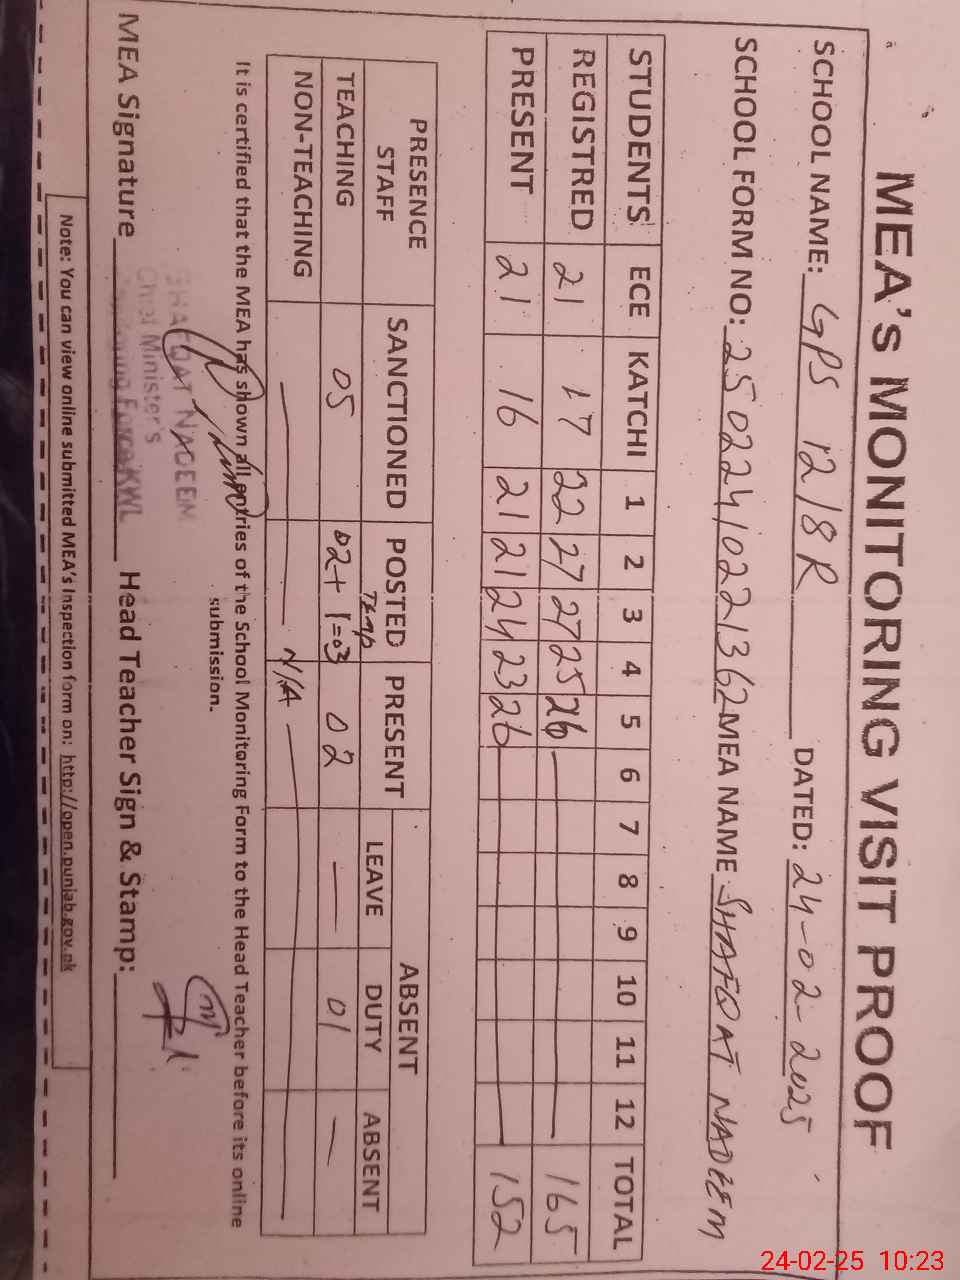 MEA'S MONITORING VISIT PROOF
SCHOOL NAME: GPS 12/8R DATED: 24-02-2025
SCHOOL FORM NO: 250224102213 62 MEA NAME SHAFQAT NADEEM
STUDENTS ECE KATCHI 1 2 3 4 5 6 7 8 9 10 11 12 TOTAL
REGISTRED 21 17 22 27 27 25 26 — 165
PRESENT 21 16 21 21 24 23 26 — 152
PRESENCE STAFF SANCTIONED POSTED PRESENT ABSENT
LEAVE DUTY ABSENT
TEACHING 05 02+1=03 Temp 02 — 01 —
NON-TEACHING — N/A —
It is certified that the MEA has shown all entries of the School Monitoring Form to the Head Teacher before its online
submission.
SHAFQAT NADEEM
Chief Minister's
Monitoring Force KWL
MEA Signature Head Teacher Sign & Stamp:
Note: You can view online submitted MEA's Inspection form on: http://open.punjab.gov.pk
24-02-25 10:23